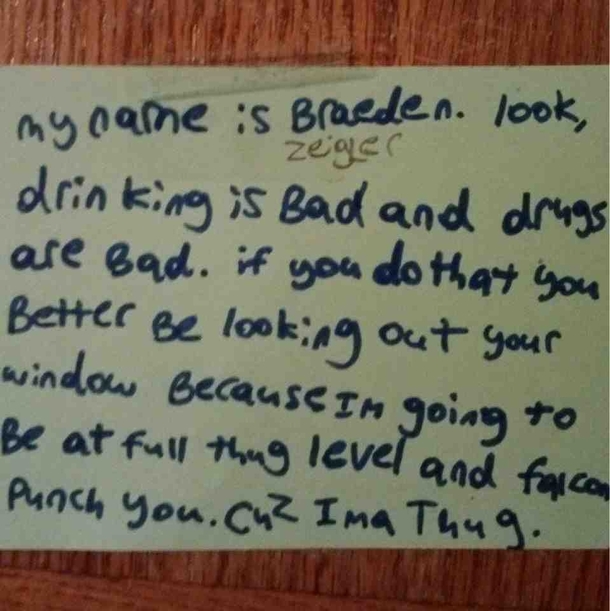 my name is Braeden. look,
zeiger
drinking is Bad and drugs
are Bad. if you do that you
Better Be looking out your
window Because Im going to
Be at full thug level and falcon
Punch you. Cuz Ima Thug.